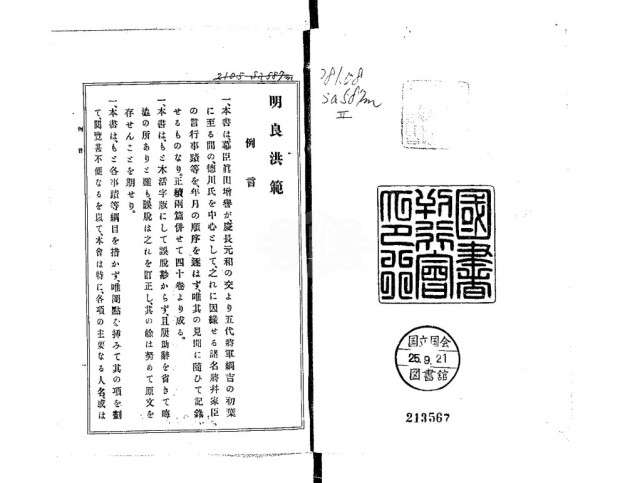 281.08
Sa587m
II
國書
刊行會
之印
国立国会
25.9.21
図書館
213567
明良洪範
例言
一、本書は幕臣眞田增譽が、慶長元和の交より五代將軍綱吉の初葉
に至る間の、德川氏を中心として、之れに因緣せる諸名將幷家臣、
の言行事蹟等を、年月の順序を逐はず、唯其の見聞に隨ひて記錄、
せるものなり。正續兩篇併せて四十卷より成る。
一、本書は、もと木活字版にして誤脫尠からず、且屢助辭を省きて晦
澁の所ありと雖も、誤脫は之れを訂正し、其の餘は努めて原文を
存せんことを期せり。
一、本書は、もと各事蹟等綱目を揭かず、唯圈點を挿みて其の項を劃
て、閱覽甚不便なるを以て、本會は特に、各項の主要なる人名、或は
例言